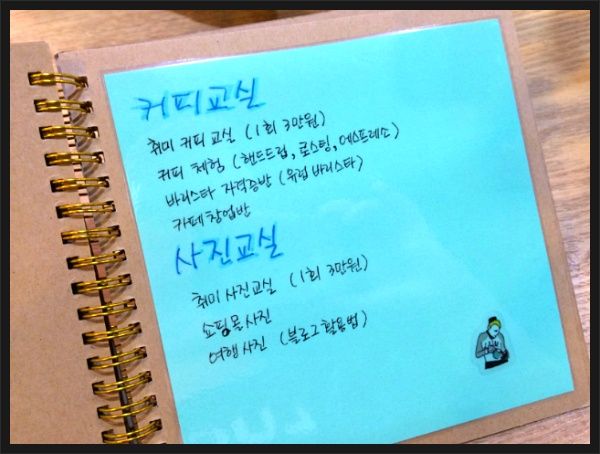 커피교실
취미 커피 교실 (1회 3만원)
커피 체험 (핸드드립, 로스팅, 에스프레소)
바리스타 자격증반 (유럽 바리스타)
카페창업반
사진교실
취미 사진교실 (1회 3만원)
쇼핑몰사진
여행사진 (블로그활용법)